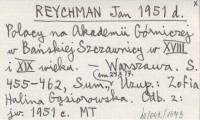 REYCHMAN Jan 1951 d.
Polacy na Akademii Górniczej
w Bańskiej Szczawnicy w XVIII
i XIX wieku. – Warszawa. S.
455–462, Sum., Uzup.: Zofia
Halina Gąsiorowska. Odb. z:
jw. 1951 c. MT